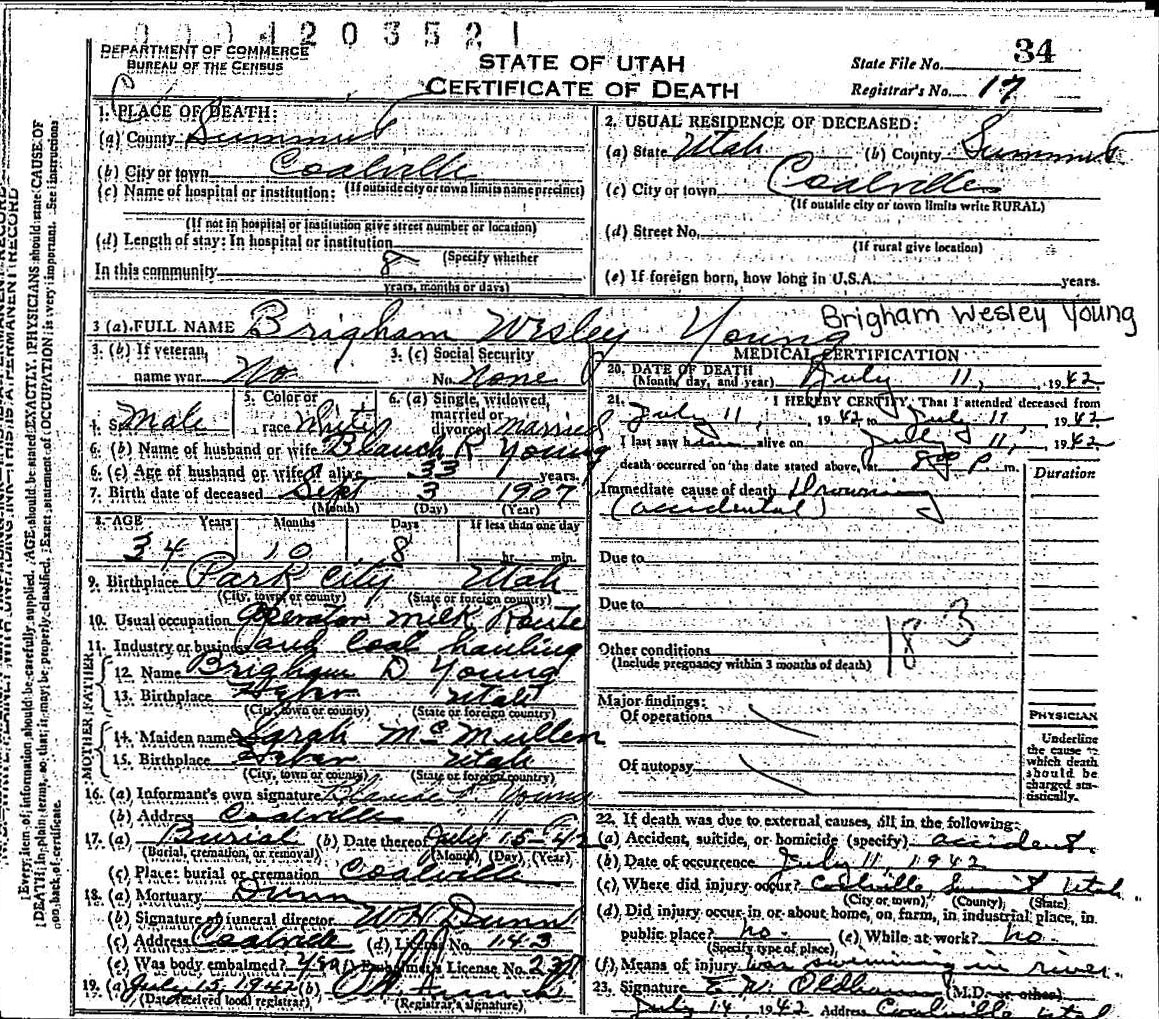 0001203521
DEPARTMENT OF COMMERCE
BUREAU OF THE CENSUS
STATE OF UTAH
CERTIFICATE OF DEATH
State File No. 34
Registrar's No. 17
1. PLACE OF DEATH:
(a) County Summit
(b) City or town Coalville
(If outside city or town limits name precinct)
(c) Name of hospital or institution:
(If not in hospital or institution give street number or location)
(d) Length of stay: In hospital or institution
(Specify whether
In this community 8
years, months or days)
2. USUAL RESIDENCE OF DECEASED:
(a) State Utah (b) County Summit
(c) City or town Coalville
(If outside city or town limits write RURAL)
(d) Street No.
(If rural give location)
(e) If foreign born, how long in U.S.A. years.
3 (a). FULL NAME Brigham Wesley Young
Brigham Wesley Young
3. (b) If veteran, name war No
3. (c) Social Security No. none
4. Sex Male
5. Color or race White
6. (a) Single, widowed, married or divorced married
6. (b) Name of husband or wife Blanch R Young
6. (c) Age of husband or wife if alive 33 years.
7. Birth date of deceased Sept 3 1907
(Month) (Day) (Year)
8. AGE Years Months Days If less than one day
34 10 8 hr. min.
9. Birthplace Park City Utah
(City, town or county) (State or foreign country)
10. Usual occupation Operator milk Route
11. Industry or business and Coal hauling
FATHER
12. Name Brigham D Young
13. Birthplace Heber Utah
(City, town or county) (State or foreign country)
MOTHER
14. Maiden name Sarah McMullen
15. Birthplace Heber Utah
(City, town or county) (State or foreign country)
16. (a) Informant's own signature Young
(b) Address Coalville
17. (a) Burial (b) Date thereof July 15-42
(Burial, cremation, or removal) (Month) (Day) (Year)
(c) Place: burial or cremation Coalville
18. (a) Mortuary Dunn
(b) Signature of funeral director Dunn
(c) Address Coalville (d) License No. 143
(e) Was body embalmed? yes (f) Embalmer's License No.
19. (a) July 15, 1942 (b)
(Date received local registrar) (Registrar's signature)
MEDICAL CERTIFICATION
20. DATE OF DEATH
(Month, day, and year) July 11, 1942
21. I HEREBY CERTIFY, That I attended deceased from
July 11, 1942 to July 11, 1942
I last saw him alive on July 11, 1942
death occurred on the date stated above, at P. m.
Duration
Immediate cause of death Drowning
(accidental)
Due to
Due to
183
Other conditions
(Include pregnancy within 3 months of death)
Major findings:
Of operations
Of autopsy
PHYSICIAN
Underline
the cause to
which death
should be
charged sta-
tistically.
22. If death was due to external causes, fill in the following:
(a) Accident, suicide, or homicide (specify) accident
(b) Date of occurrence July 11 1942
(c) Where did injury occur? Coalville, Summit Utah
(City or town) (County) (State)
(d) Did injury occur in or about home, on farm, in industrial place, in
public place? no. (e) While at work? no.
(Specify type of place)
(f) Means of injury was swimming in river
23. Signature E. W. Oldham (M.D. or other)
July 14 1942 Address Coalville Utah
Every item of information should be carefully supplied. AGE should be stated EXACTLY. PHYSICIANS should state CAUSE OF
DEATH in plain terms, so that it may be properly classified. Exact statement of OCCUPATION is very important. See instructions
on back of certificate.